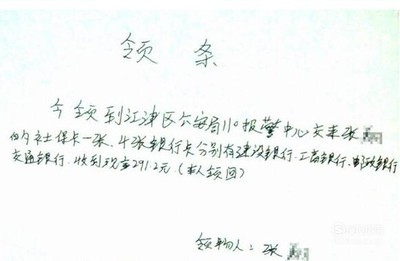 领 条
今领到江津区公安局110报警中心交来张
的内社保卡一张、4张银行卡分别有建设银行、工商银行、邮政银行
交通银行、收到现金291.2元（本人领回）
领物人：张